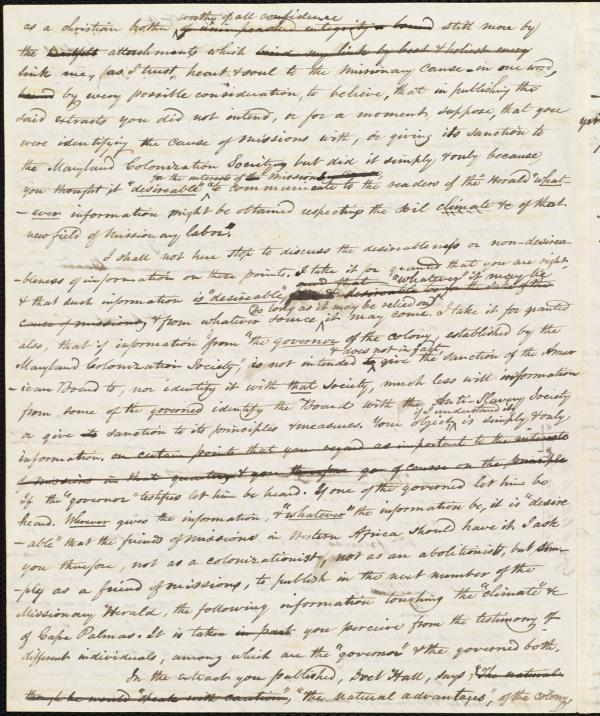 worthy of all confidence
as a christian brother of unimpeached integrity & bound still more by
the attachments which bind my link by best & holiest
link me, (as I trust, heart & soul to the missionary cause - in one word,
bound by every possible consideration, to believe, that in publishing the
said extracts you did not intend, or for a moment, suppose, that you
were identifying the cause of missions with, or giving its sanction to
the Maryland Colonization Society, but did it simply & only because
for the interest of missions
you thought it "desireable" to communicate to the readers of the Herald "what-
- ever information might be obtained respecting the soil climate &c of that
new field of missionary labor."
I shall not here stop to discuss the desireableness or non-desirea-
-bleness of information on those points. I take it for granted that you are right
& that such information is "desireable", and that "whatever" it may be
& desireable too for the sake of the
so long as it may be relied on
cause of missions, & from whatever source it may come. I take it for granted
also, that if information from "the governor of the colony, established by the
& does not in fact,
Maryland Colonization Society" is not intended to give the sanction of the Amer
- ican Board to, nor identify it with that Society, much less will information
from some of the governed identify the Board with the Anti-Slavery Society
if I understand it
or give its sanction to its principles & measures. Your object is simply & only
information. on certain points that you regard as important to the interests
of missions in that quarter & you therefore go of course on the principle
If the "governor" testifies let him be heard. If one of the governed let him be
heard. Whoever gives the information, & "whatever" the information be, it is "desire
-able" that the friends of missions in Western Africa, should have it. I ask
you therefore, not as a colonizationist, not as an abolitionist, but sim-
-ply as a friend of missions, to publish in the next number of the
Missionary Herald, the following information touching the "climate" &c
of Cape Palmas. It is taken in part you perceive from the testimony of
different individuals, among which are the "governor" & the governed both.
In the extract you published, Doct Hall, says, "The natural
he would "speak with caution", "the natural advantages", of the colony,